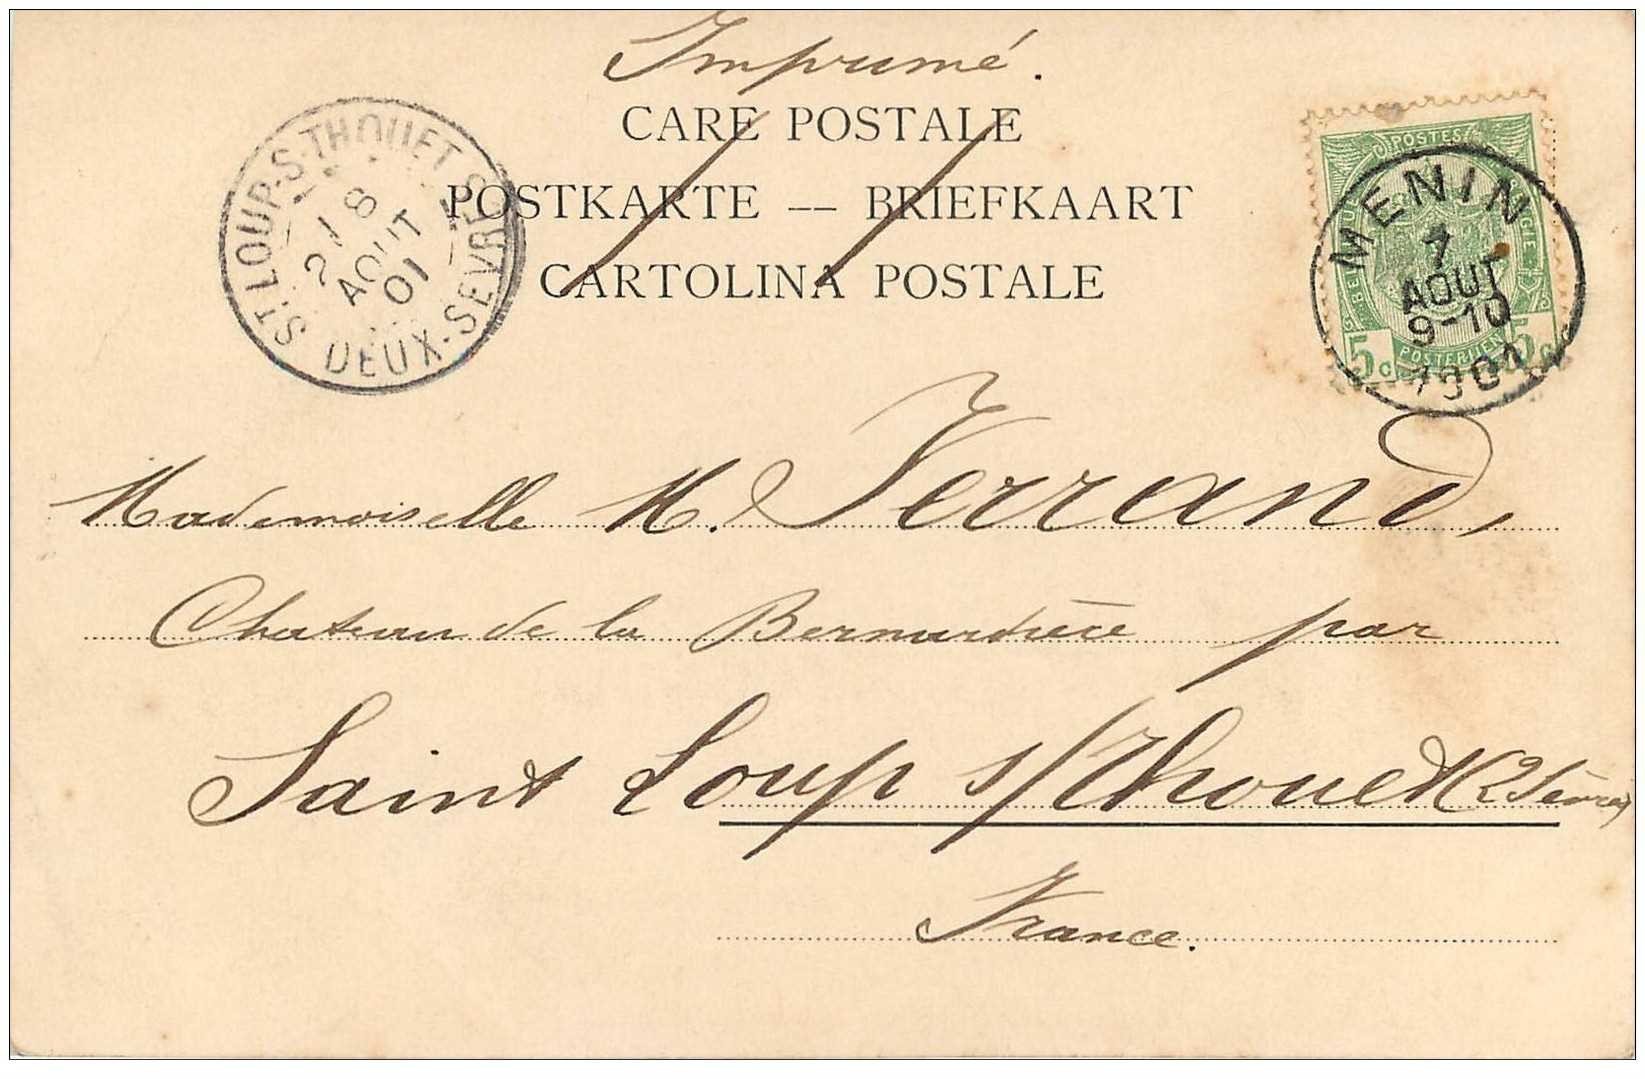 Imprimé.
CARE POSTALE
POSTKARTE -- BRIEFKAART
CARTOLINA POSTALE
ST. LOUP-S-THOUET
DEUX-SEVRES
AOUT
01
POSTES
BELGIE
5c 5c
POSTERIJEN
MENIN
7
AOUT
9-10
1901
Mademoiselle M. Ferrand,
Chateau de la Bernardière par
Saint Loup s/Thouet (2 Sèvres)
France.